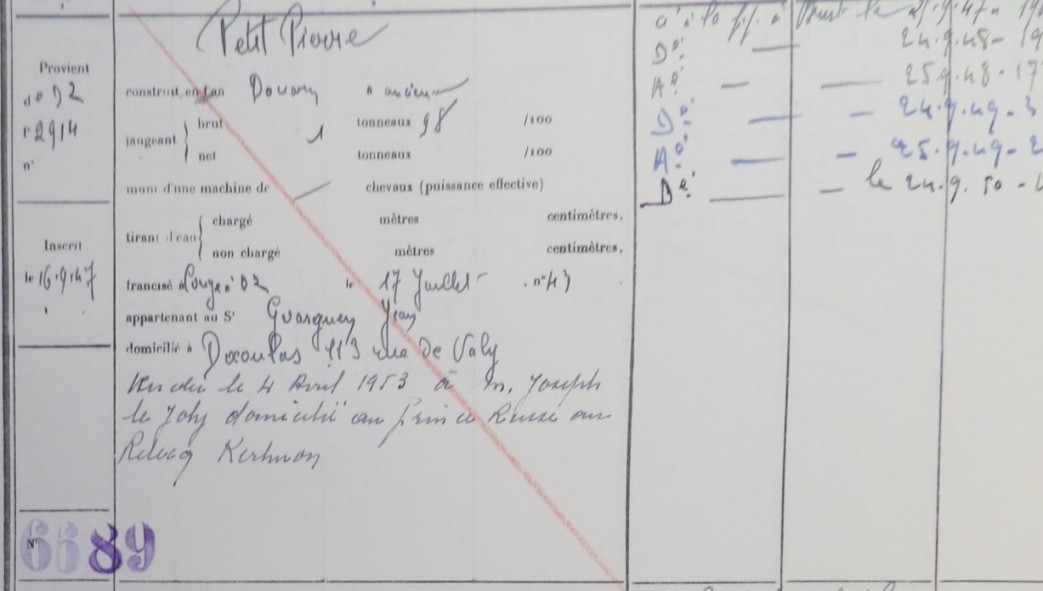 Petit Pierre
Provient
de D2
f° 2914
n°
construit en l'an Douarn à ancien
jaugeant
brut 1 tonneaux 98 /100
net tonneaux /100
muni d'une machine de chevaux (puissance effective)
tirant d'eau
chargé mètres centimètres.
non chargé mètres centimètres.
Inscrit
le 16.9.47
francisé le 17 Juillet n° 43
appartenant au Sr Jean
domicilié à 113 rue de Valy
Vendu le 4 Avril 1953 à M. Joseph
le Joly domicilié au Prince Russe au
Relecq Kerhuon
N°
6689
à la ff. à Brest le
D° 24.9.48
A° 25.9.48
D° 24.9.49
A° 25.9.49
D° le 24.9.50